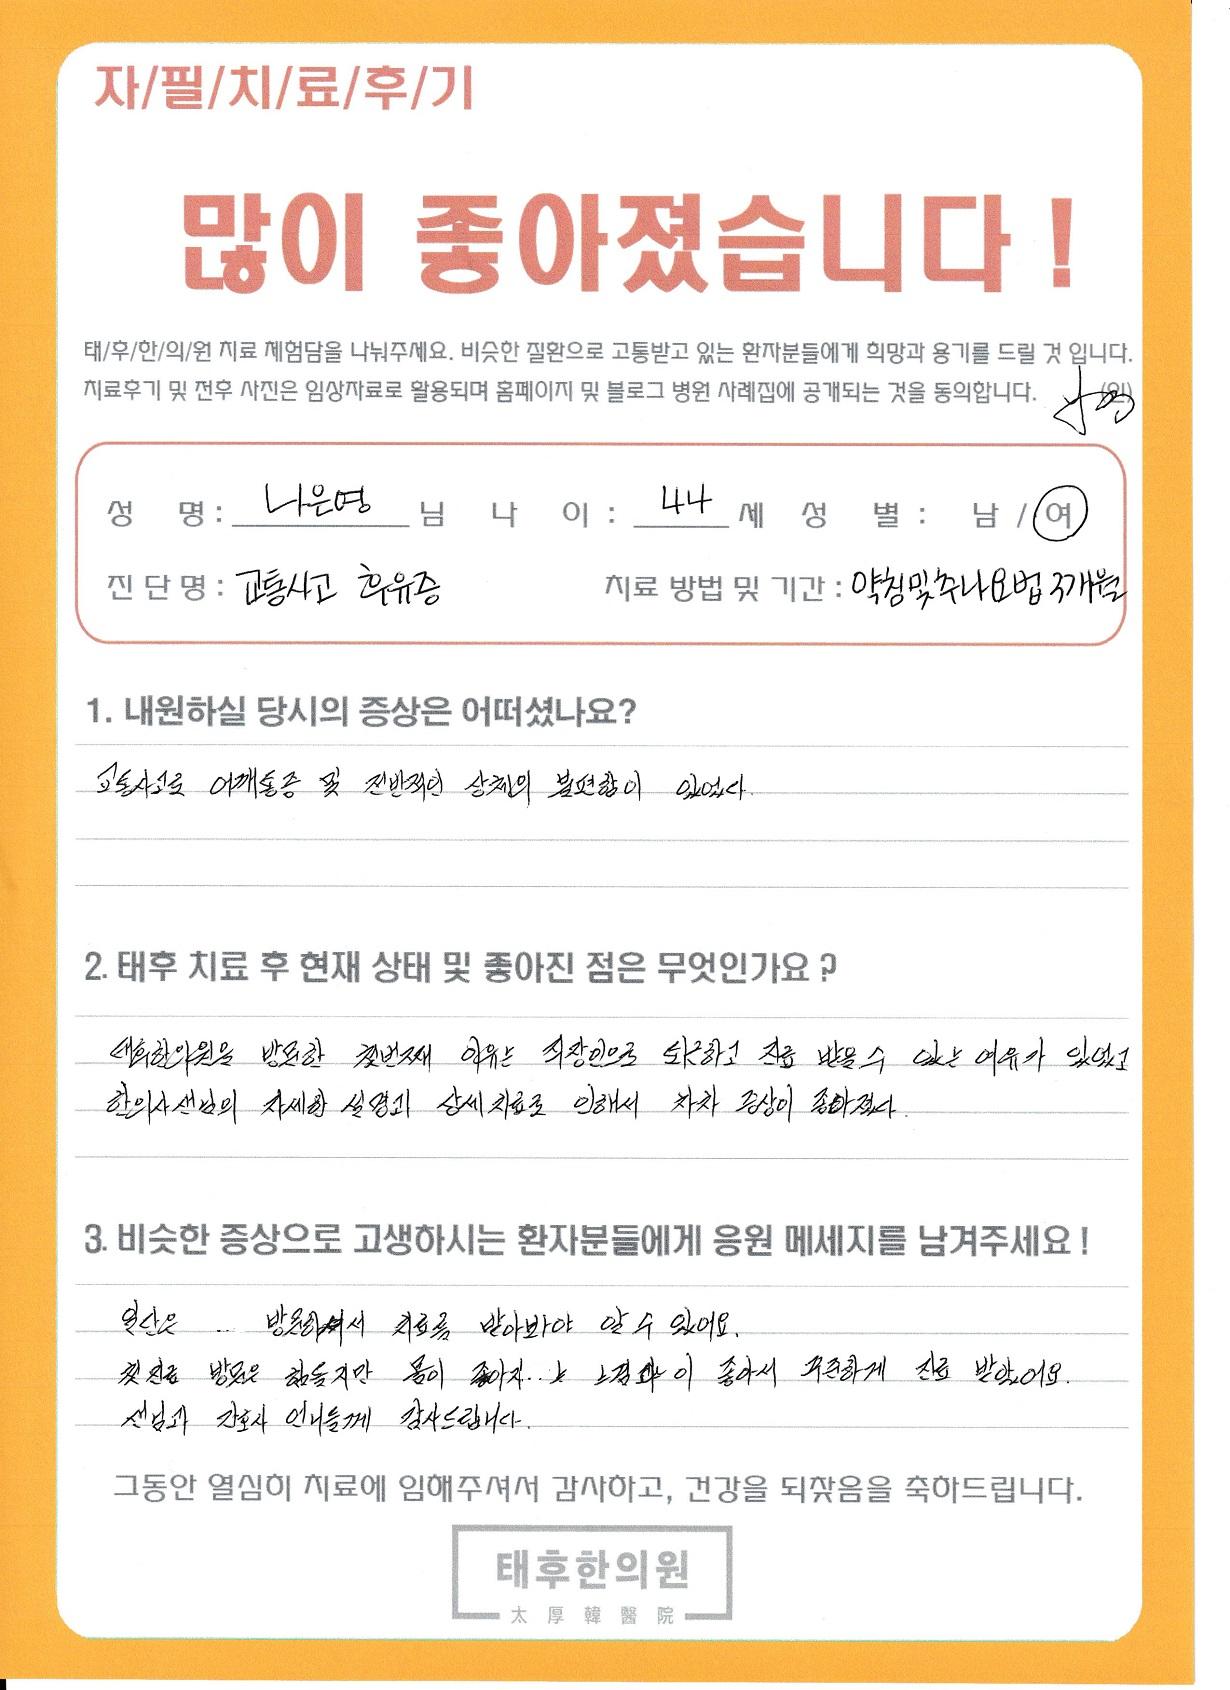 자/필/치/료/후/기
많이 좋아졌습니다!
태/후/한/의/원 치료 체험담을 나눠주세요. 비슷한 질환으로 고통받고 있는 환자분들에게 희망과 용기를 드릴 것 입니다.
치료후기 및 전후 사진은 임상자료로 활용되며 홈페이지 및 블로그 병원 사례집에 공개되는 것을 동의합니다. (인)
성 명: 나은영 님 나 이 : 44 세 성 별 : 남 / 여
진 단 명 : 교통사고 후유증 치료 방법 및 기간 : 약침및추나요법 3개월
1. 내원하실 당시의 증상은 어떠셨나요?
교통사고로 어깨통증 및 전반적인 상체의 불편함이 있었다.
2. 태후 치료 후 현재 상태 및 좋아진 점은 무엇인가요 ?
태후한의원을 방문한 첫번째 이유는 직장인으로 퇴근하고 진료 받을 수 있는 여유가 있었고
한의사선님의 자세한 설명과 상세치료로 인해서 차차 증상이 좋아졌다.
3. 비슷한 증상으로 고생하시는 환자분들에게 응원 메세지를 남겨주세요 !
일단은 .. 방문하셔서 치료를 받아봐야 알 수 있어요.
첫 진료 방문은 힘들지만 몸이 좋아지..는 이 좋아서 꾸준하게 진료 받았어요.
선님과 간호사 언니들께 감사드립니다.
그동안 열심히 치료에 임해주셔서 감사하고, 건강을 되찾음을 축하드립니다.
태후한의원
太 厚 韓 醫 院